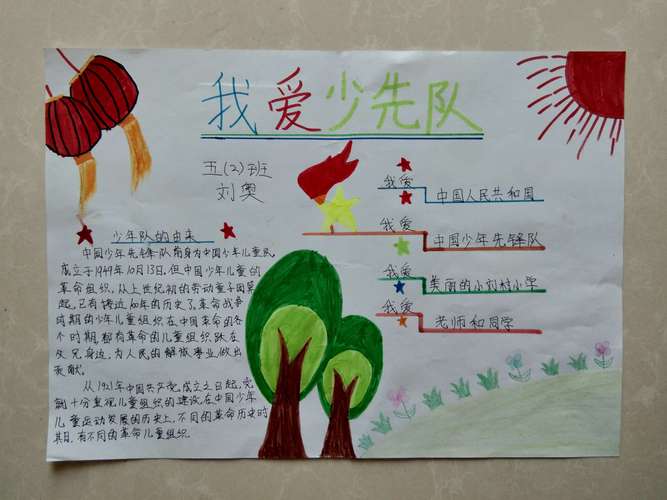 我爱少先队
五(2)班
刘奥
少年队的由来
中国少年先锋队前身为中国少年儿童队
成立于1949年10月13日.但中国少年儿童的
革命组织,从上世纪初的劳动童子团算
起,已有接近百年的历史了.革命战争
时期的少年儿童组织在中国革命的各
个时期,都有革命的儿童组织跃在
父兄身边,为人民的解放事业,做出
贡献.
从1921年中国共产党成立之日起,党
就十分重视儿童组织的建设,在中国少年
儿童运动发展的历史上,不同的革命历史时
期,有不同的革命儿童组织
我爱
中国人民共和国
我爱
中国少年先锋队
我爱
美丽的小刘村小学
我爱
老师和同学